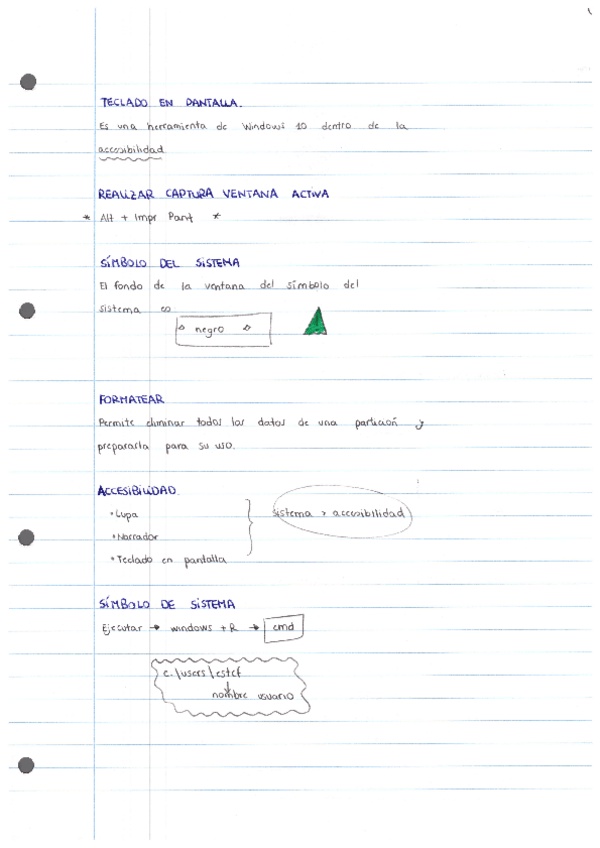 TECLADO EN PANTALLA.
Es una herramienta de Windows 10 dentro de la
accesibilidad
REALIZAR CAPTURA VENTANA ACTIVA
* Alt + Impr Pant *
SÍMBOLO DEL SISTEMA
El fondo de la ventana del símbolo del
sistema es
negro
FORMATEAR
Permite eliminar todos los datos de una partición y
prepararla para su uso.
ACCESIBILIDAD.
• Lupa
sistema > accesibilidad
• Narrador
• Teclado en pantalla
SÍMBOLO DE SISTEMA
Ejecutar → windows + R → cmd
c:\users\
nombre usuario